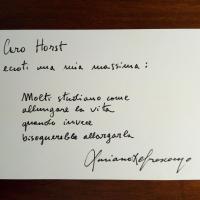 Caro Horst
eccoti una mia massima:
Molti studiano come
allungare la vita
quando invece
bisognerebbe allargarla
Luciano De Crescenzo